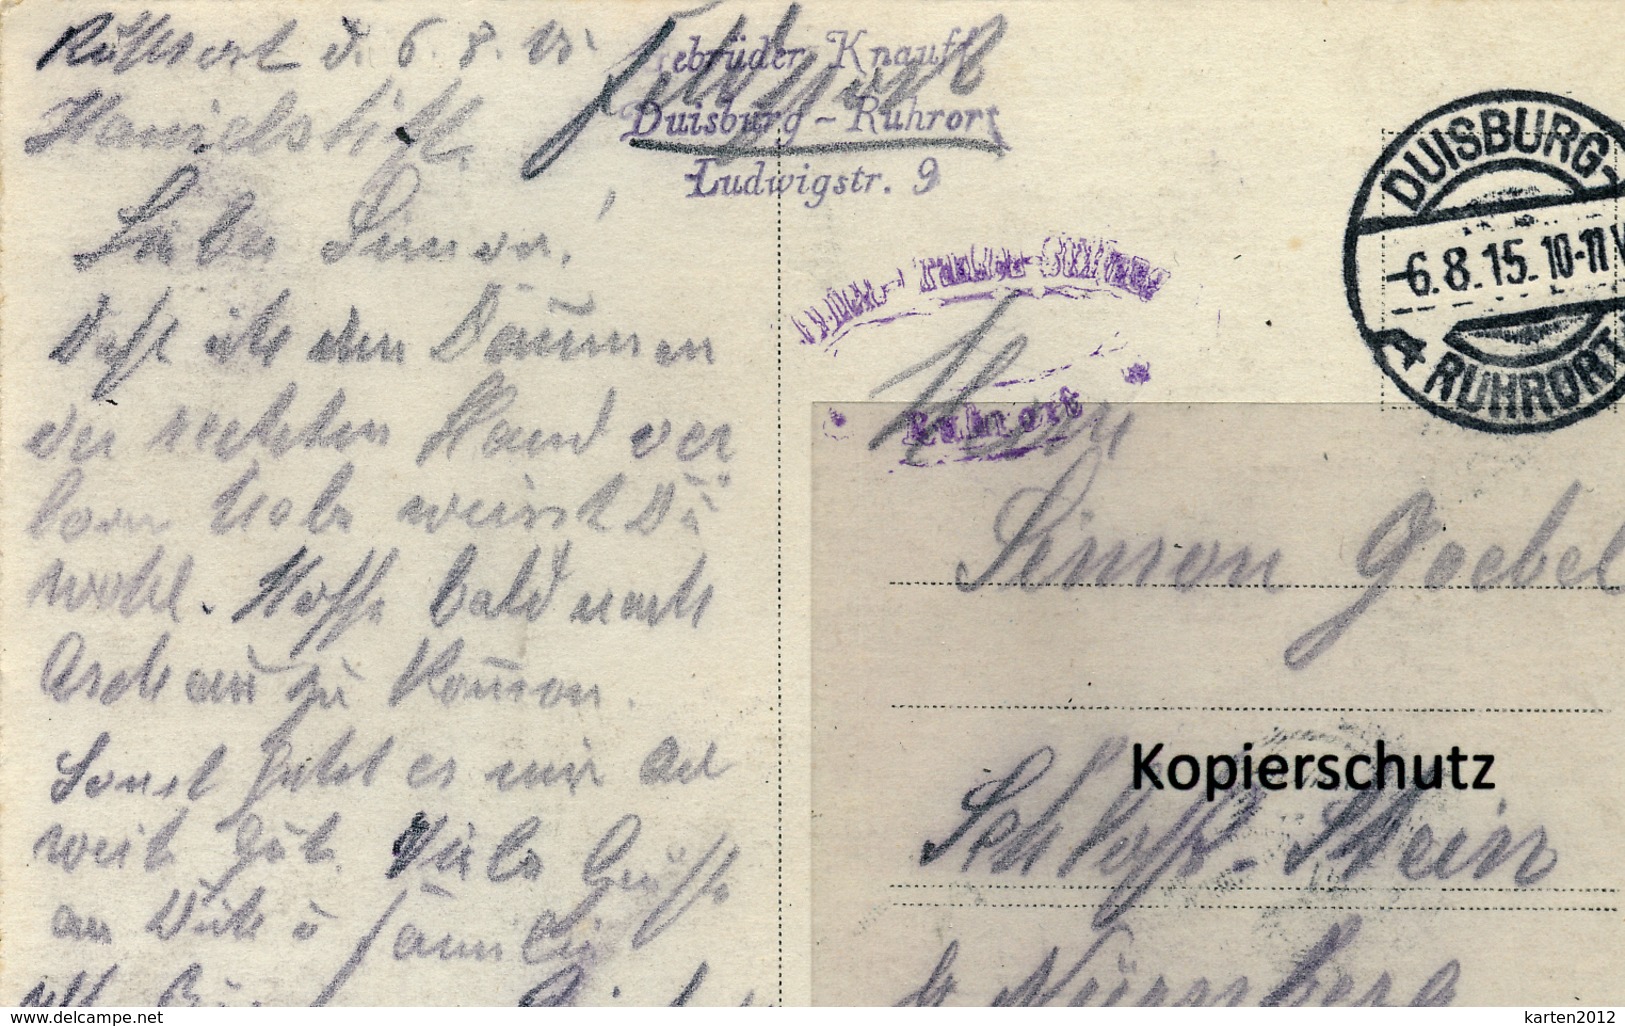 Ruhrort d. 6.8.15.
Hanielstift.
Lieber Simon!
Daß ich den Daumen
der rechten Hand ver
lorn habe weisst Du
wohl. Hoffe bald nach
Aschau zu kommen.
Sonst geht es mir so
weit gut. Viele Grüße
an Dich u Familie
Feldpost
Gebrüder Knauff
Duisburg-Ruhrort
Ludwigstr. 9
Ruhrort
DUISBURG-
-6.8.15.10-11V
RUHRORT
Herrn
Simon Goebel
Kopierschutz
Schloß-Stein
b Nürnberg
www.delcampe.net
karten2012